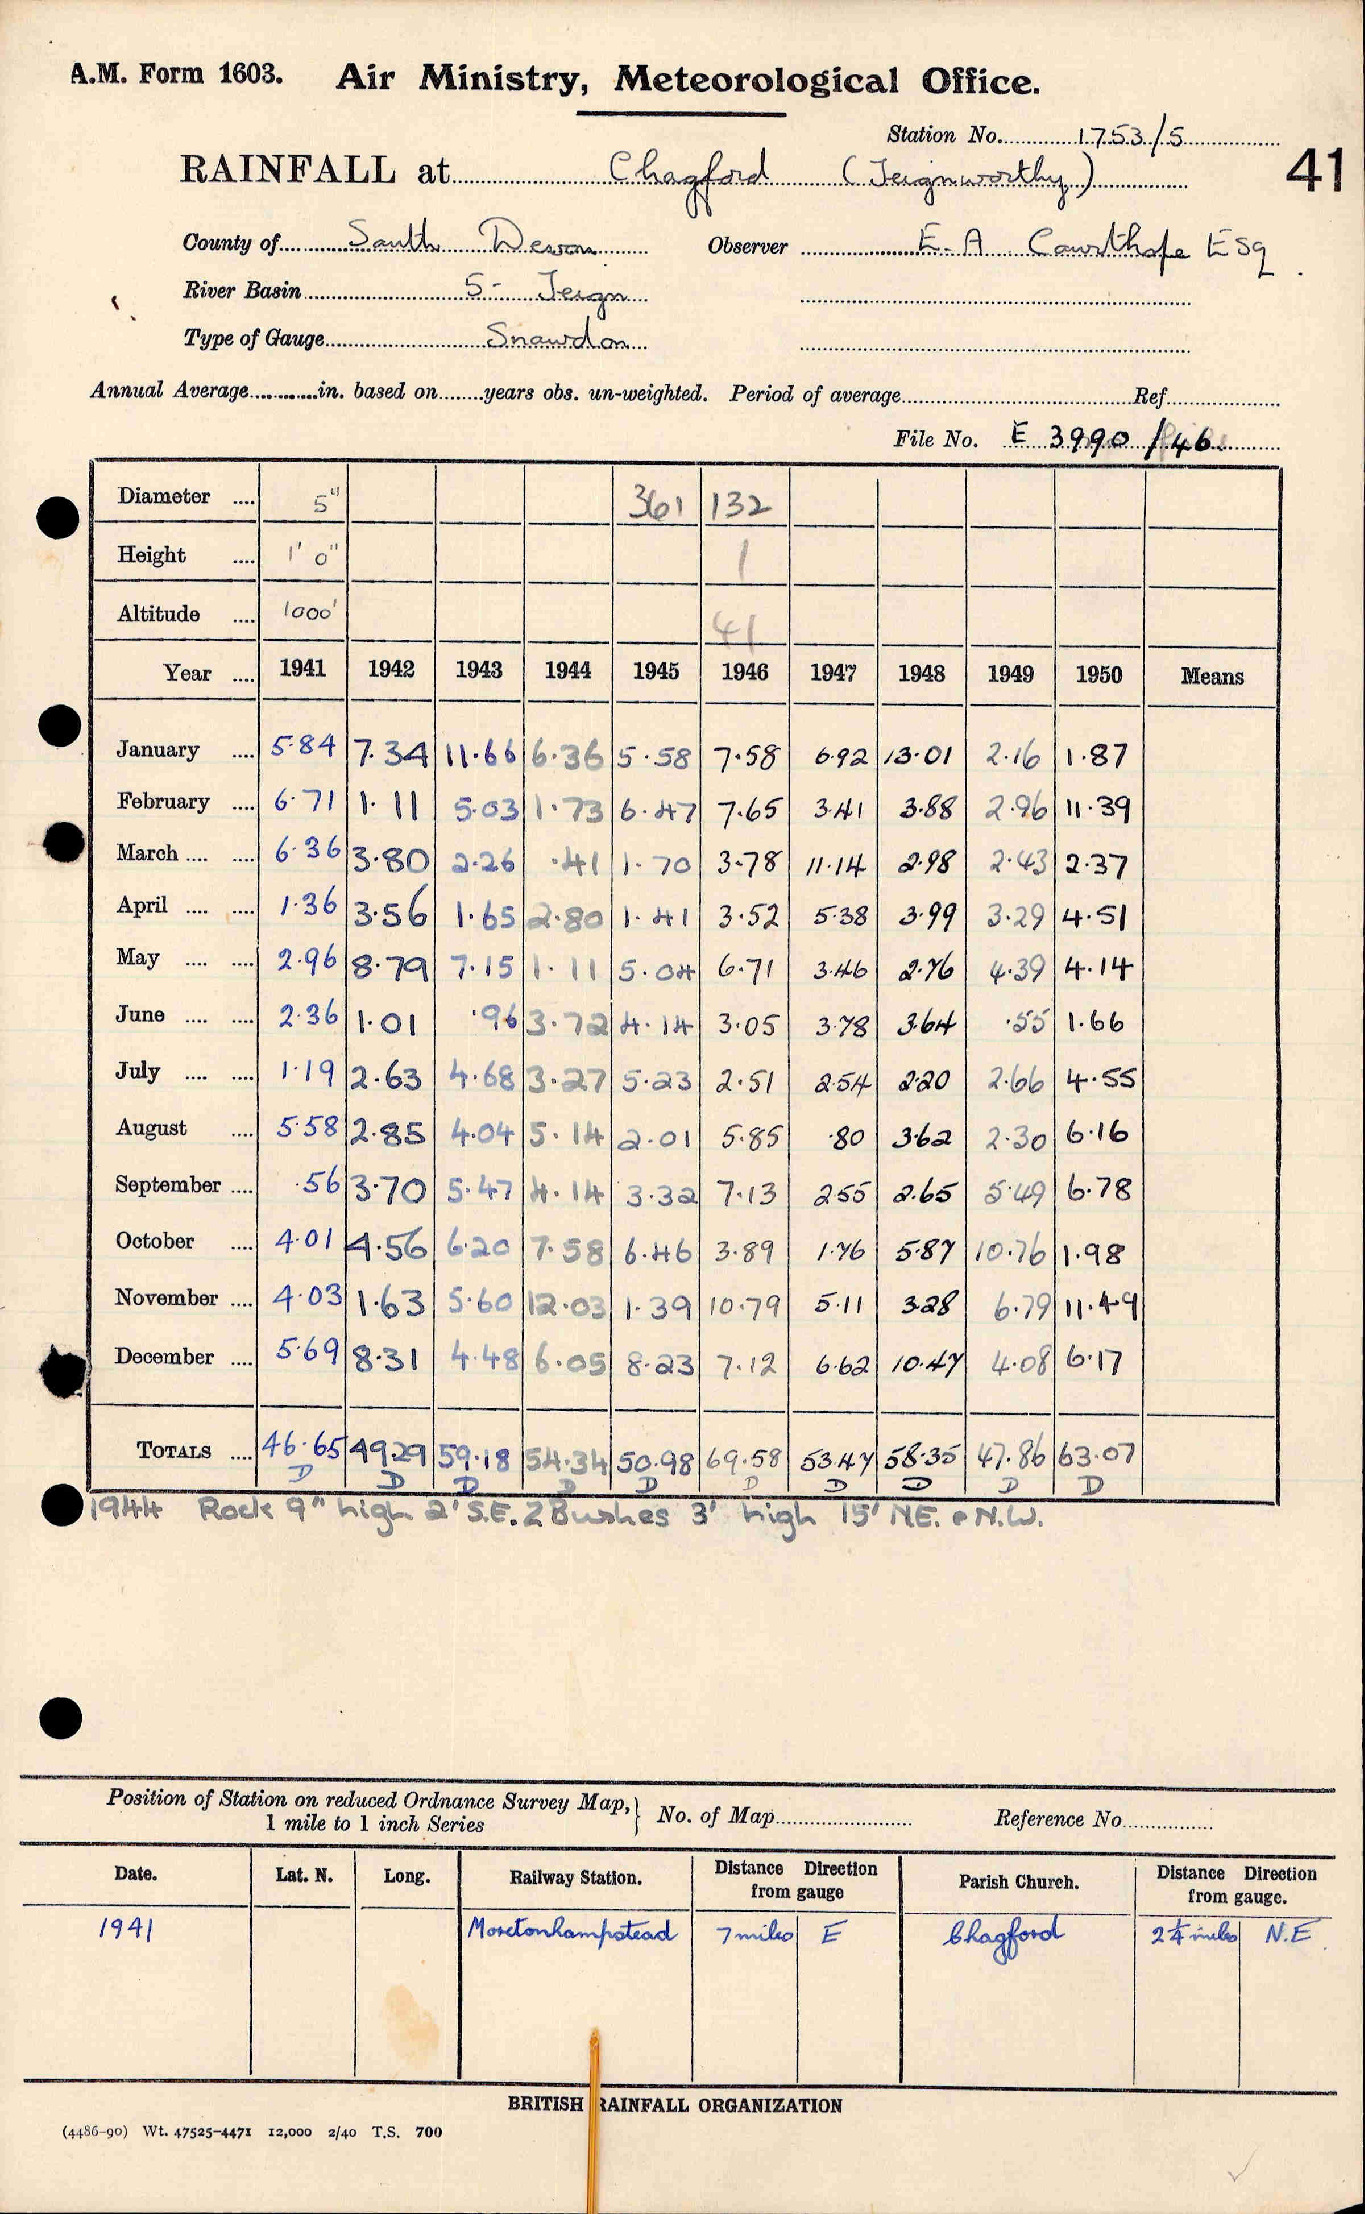 A.M. Form 1603. Air Ministry, Meteorological Office.
Station No. 1753/5
41
RAINFALL at Chagford (Teignworthy)
County of South Devon Observer E. A Courthope ESq.
River Basin 5- Teign
Type of Gauge Snowdon
Annual Average in. based on years obs. un-weighted. Period of average Ref
File No. E 3990/46
Diameter 5" 361 132
Height 1' 0" 1
Altitude 1000' 41
Year 1941 1942 1943 1944 1945 1946 1947 1948 1949 1950 Means
January 5.84 7.34 11.66 6.36 5.58 7.58 6.92 13.01 2.16 1.87
February 6.71 1.11 5.03 1.73 6.47 7.65 3.41 3.88 2.96 11.39
March 6.36 3.80 2.26 .41 1.70 3.78 11.14 2.98 2.43 2.37
April 1.36 3.56 1.65 2.80 1.41 3.52 5.38 3.99 3.29 4.51
May 2.96 8.79 7.15 1.11 5.04 6.71 3.46 2.76 4.39 4.14
June 2.36 1.01 .96 3.72 4.14 3.05 3.78 3.64 .55 1.66
July 1.19 2.63 4.68 3.27 5.23 2.51 2.54 2.20 2.66 4.55
August 5.58 2.85 4.04 5.14 2.01 5.85 .80 3.62 2.30 6.16
September .56 3.70 5.47 4.14 3.32 7.13 2.55 2.65 5.49 6.78
October 4.01 4.56 6.20 7.58 6.46 3.89 1.76 5.87 10.76 1.98
November 4.03 1.63 5.60 12.03 1.39 10.79 5.11 3.28 6.79 11.49
December 5.69 8.31 4.48 6.05 8.23 7.12 6.62 10.47 4.08 6.17
TOTALS 46.65 49.29 59.18 54.34 50.98 69.58 53.47 58.35 47.86 63.07
D D D D D D D D D D
1944 Rock 9" high 2' S.E. 2 Bushes 3' high 15' NE. & N.W.
Position of Station on reduced Ordnance Survey Map, 1 mile to 1 inch Series } No. of Map Reference No
Date. Lat. N. Long. Railway Station. Distance Direction from gauge Parish Church. Distance Direction from gauge.
1941 Moretonhampstead 7 miles E Chagford 2¼ miles N.E.
BRITISH RAINFALL ORGANIZATION
(4486-90) Wt. 47525-4471 12,000 2/40 T.S. 700